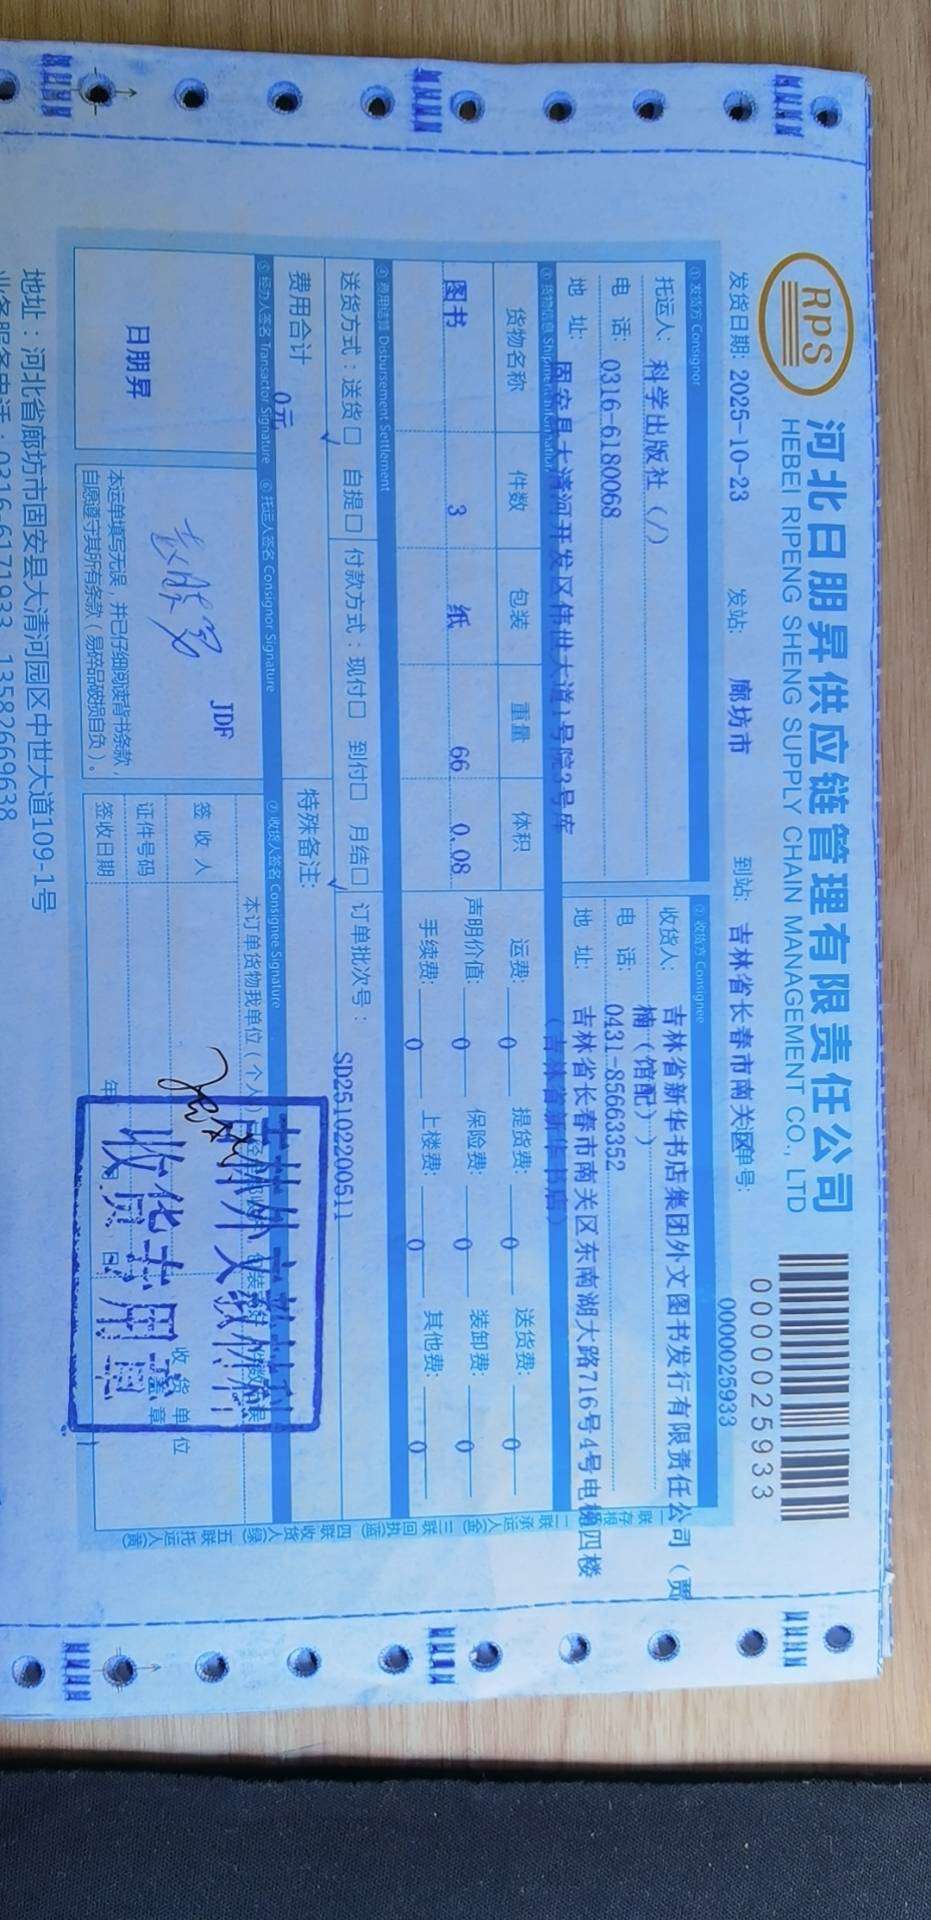 RPS
河北日朋昇供应链管理有限责任公司
HEBEI RIPENG SHENG SUPPLY CHAIN MANAGEMENT CO., LTD
0000025933
发货日期: 2025-10-23 发站: 廊坊市 到站: 吉林省长春市南关区 单号: 0000025933
① 发货方 Consignor
托运人: 科学出版社 (/)
电 话: 0316-6180068
地 址: 固安县大清河开发区伟世大道1号院3号库
② 收货方 Consignee
收货人: 吉林省新华书店集团外文图书发行有限责任公司 (贾
楠 (馆配))
电 话: 0431-85663352
地 址: 吉林省长春市南关区东南湖大路716号4号电梯四楼
(吉林省新华书店)
③ 货物信息 Shipment Information
货物名称 件数 包装 重量 体积
图书 3 纸 66 0.08
运费: 0 提货费: 0 送货费: 0
声明价值: 0 保险费: 0 装卸费: 0
手续费: 0 上楼费: 0 其他费: 0
④ 费用结算 Disbursement Settlement
送货方式: 送货□ √ 自提□ 付款方式: 现付□ 到付□ 月结□ √ 订单批次号: SD25102200511
费用合计 0元 特殊备注:
⑤ 经办人签名 Transactor Signature
日朋昇
⑥ 托运人签名 Consignor Signature
JDF
本运单填写无误，并已仔细阅读背书条款，
自愿遵守其所有条款(易碎品破损自负)。
⑦ 收货人签名 Consignee Signature
本订单货物我单位(个人)
签 收 人
证件号码
签收日期 年 月 日
收货单位
盖章
吉林外文教材科
收货专用章
一联存根 二联承运人 三联回执 四联收货人 五联托运人
地址：河北省廊坊市固安县大清河园区中世大道109-1号
业务服务电话：0316-6171933 13582669638